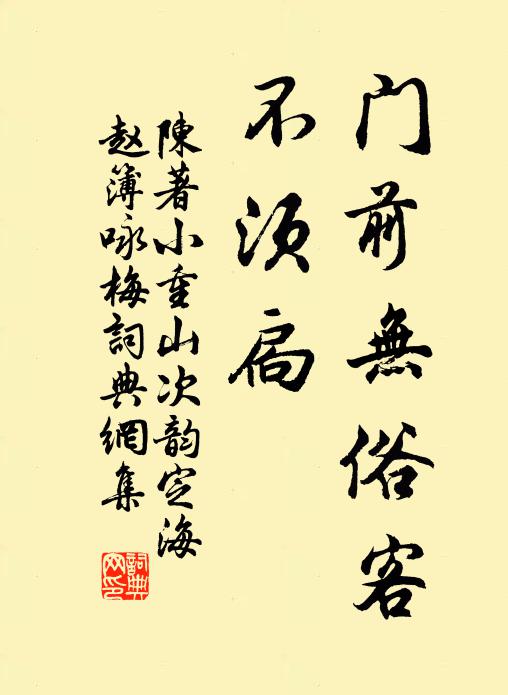 门前無俗客
不须扃
陳著小重山次韵定海
赵簿咏梅詞典網集
詞典网印